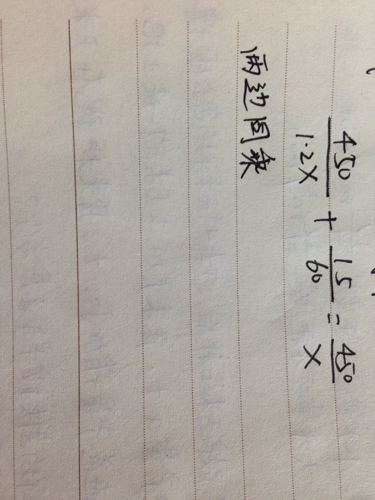 450/1.2X + 15/60 = 450/X
两边同乘